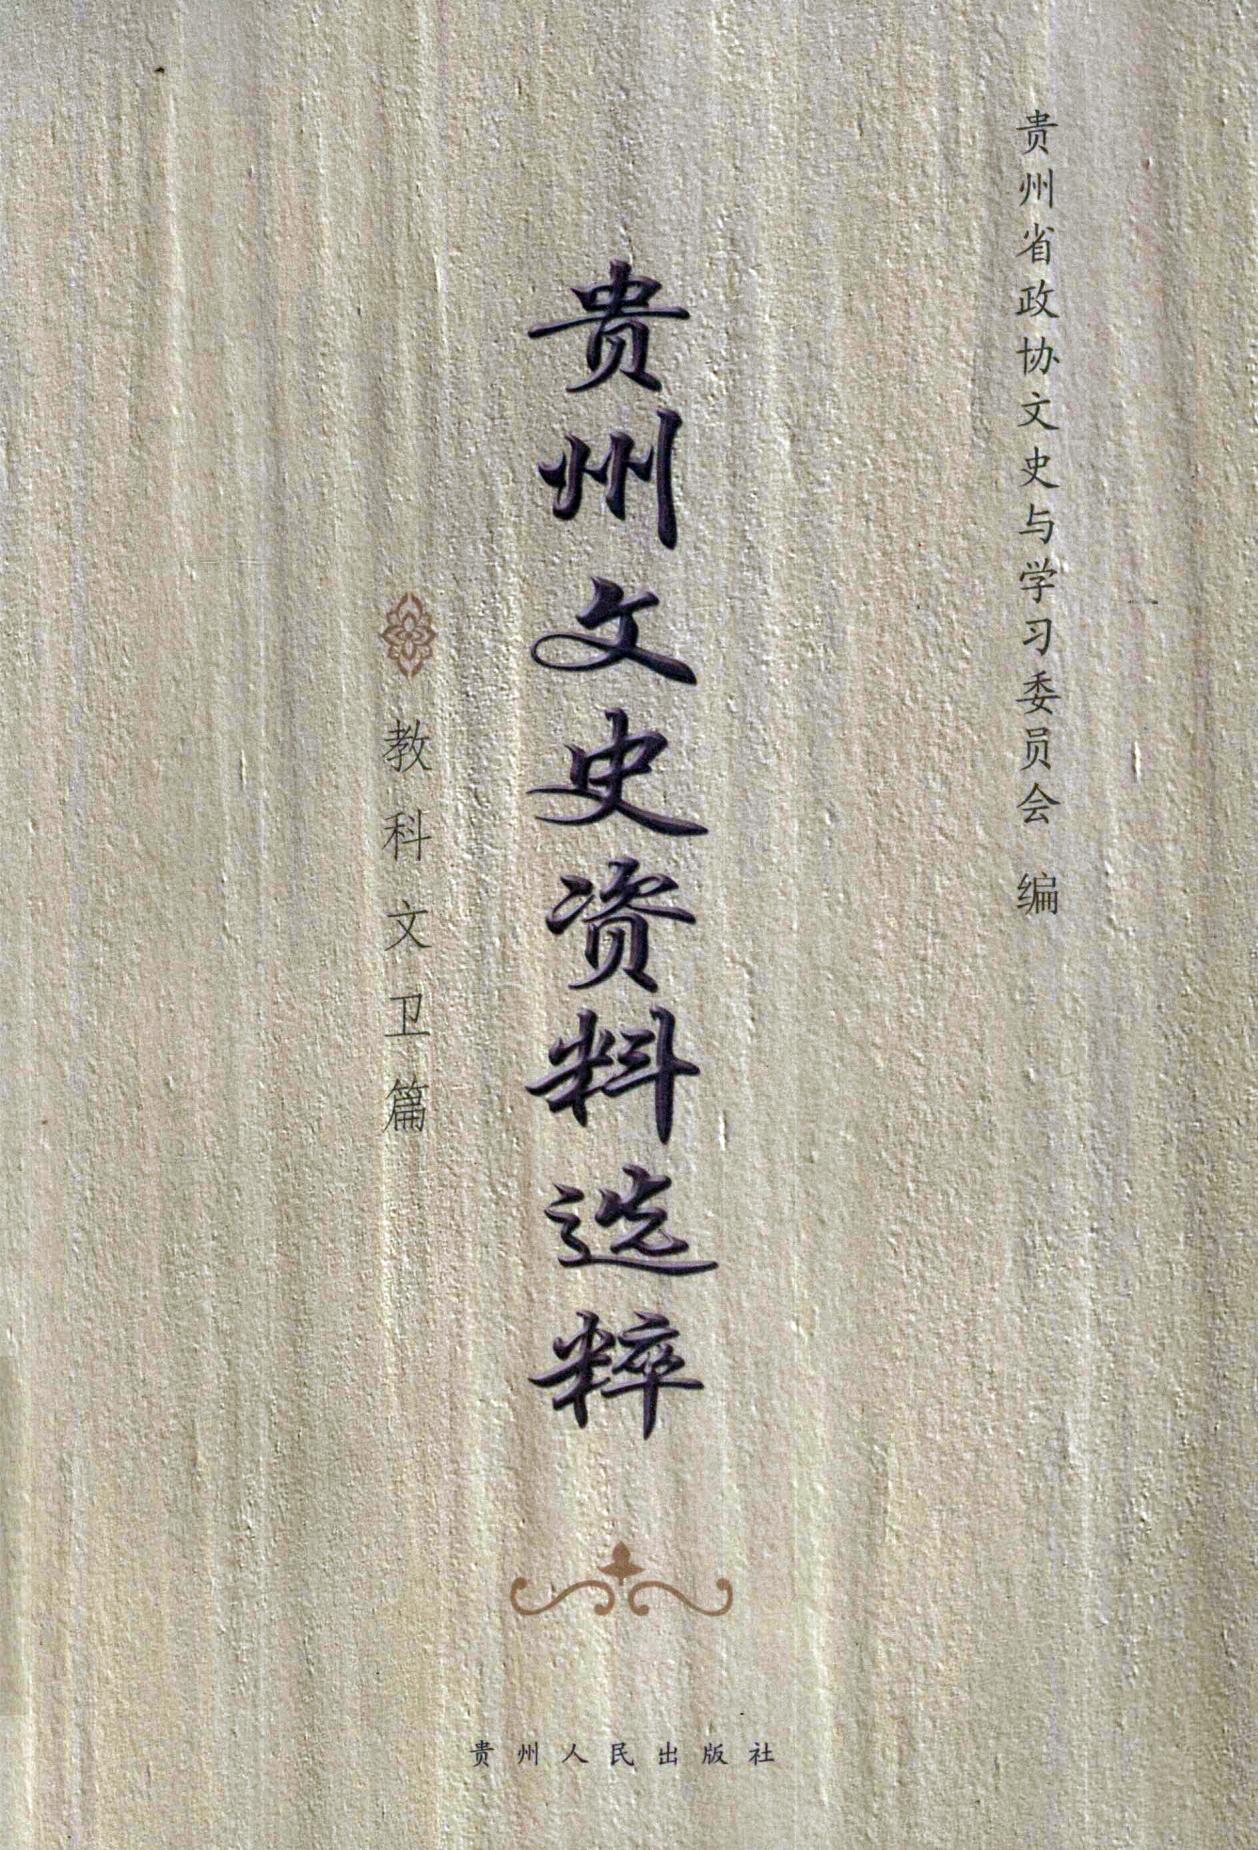 贵州省政协文史与学习委员会 编
贵州文史资料选粹
教科文卫篇
贵州人民出版社